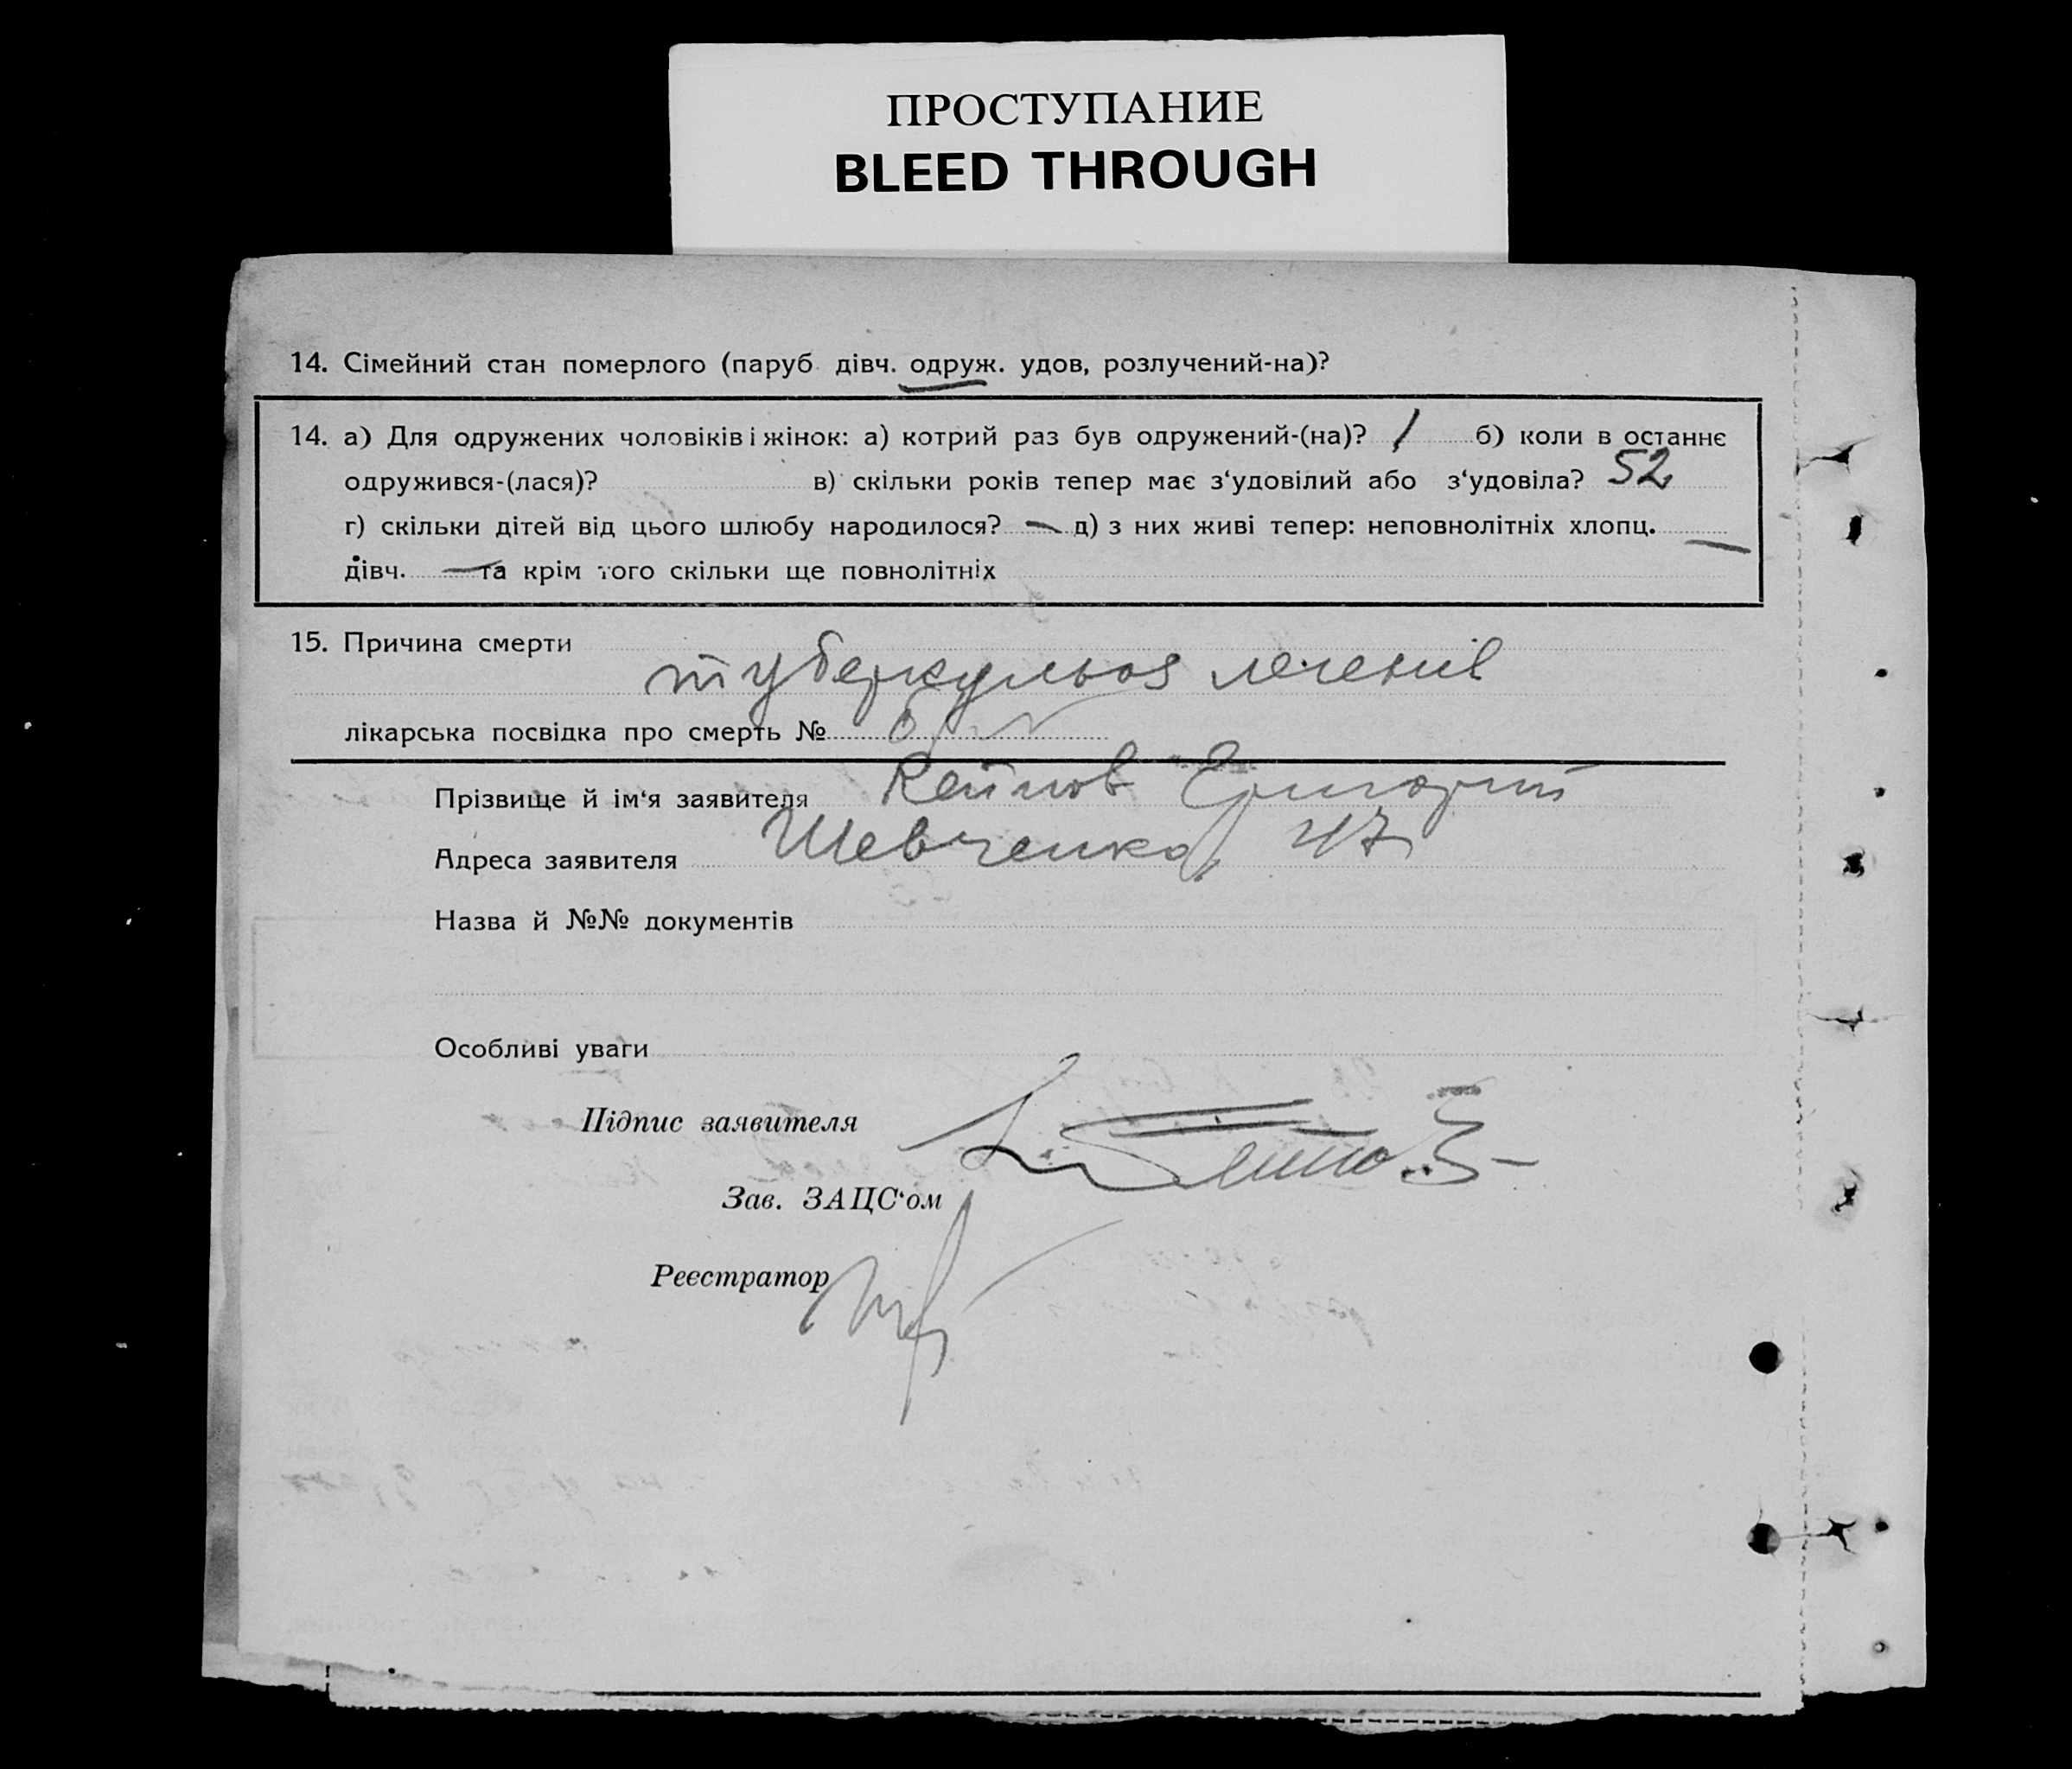 ПРОСТУПАНИЕ
BLEED THROUGH
14. Сімейний стан померлого (паруб дівч. одруж. удов, розлучений-на)?
14. а) Для одружених чоловіків і жінок: а) котрий раз був одружений-(на)? 1 б) коли в останнє
одружився-(лася)? в) скільки років тепер має з‘удовілий або з‘удовіла? 52
г) скільки дітей від цього шлюбу народилося? — д) з них живі тепер: неповнолітніх хлопц. —
дівч. — та крім того скільки ще повнолітніх
15. Причина смерти
туберкульоз легенів
лікарська посвідка про смерть №
Прізвище й ім‘я заявителя Григорий
Адреса заявителя Шевченка, 47
Назва й №№ документів
Особливі уваги
Підпис заявителя
Зав. ЗАЦС‘ом
Реєстратор